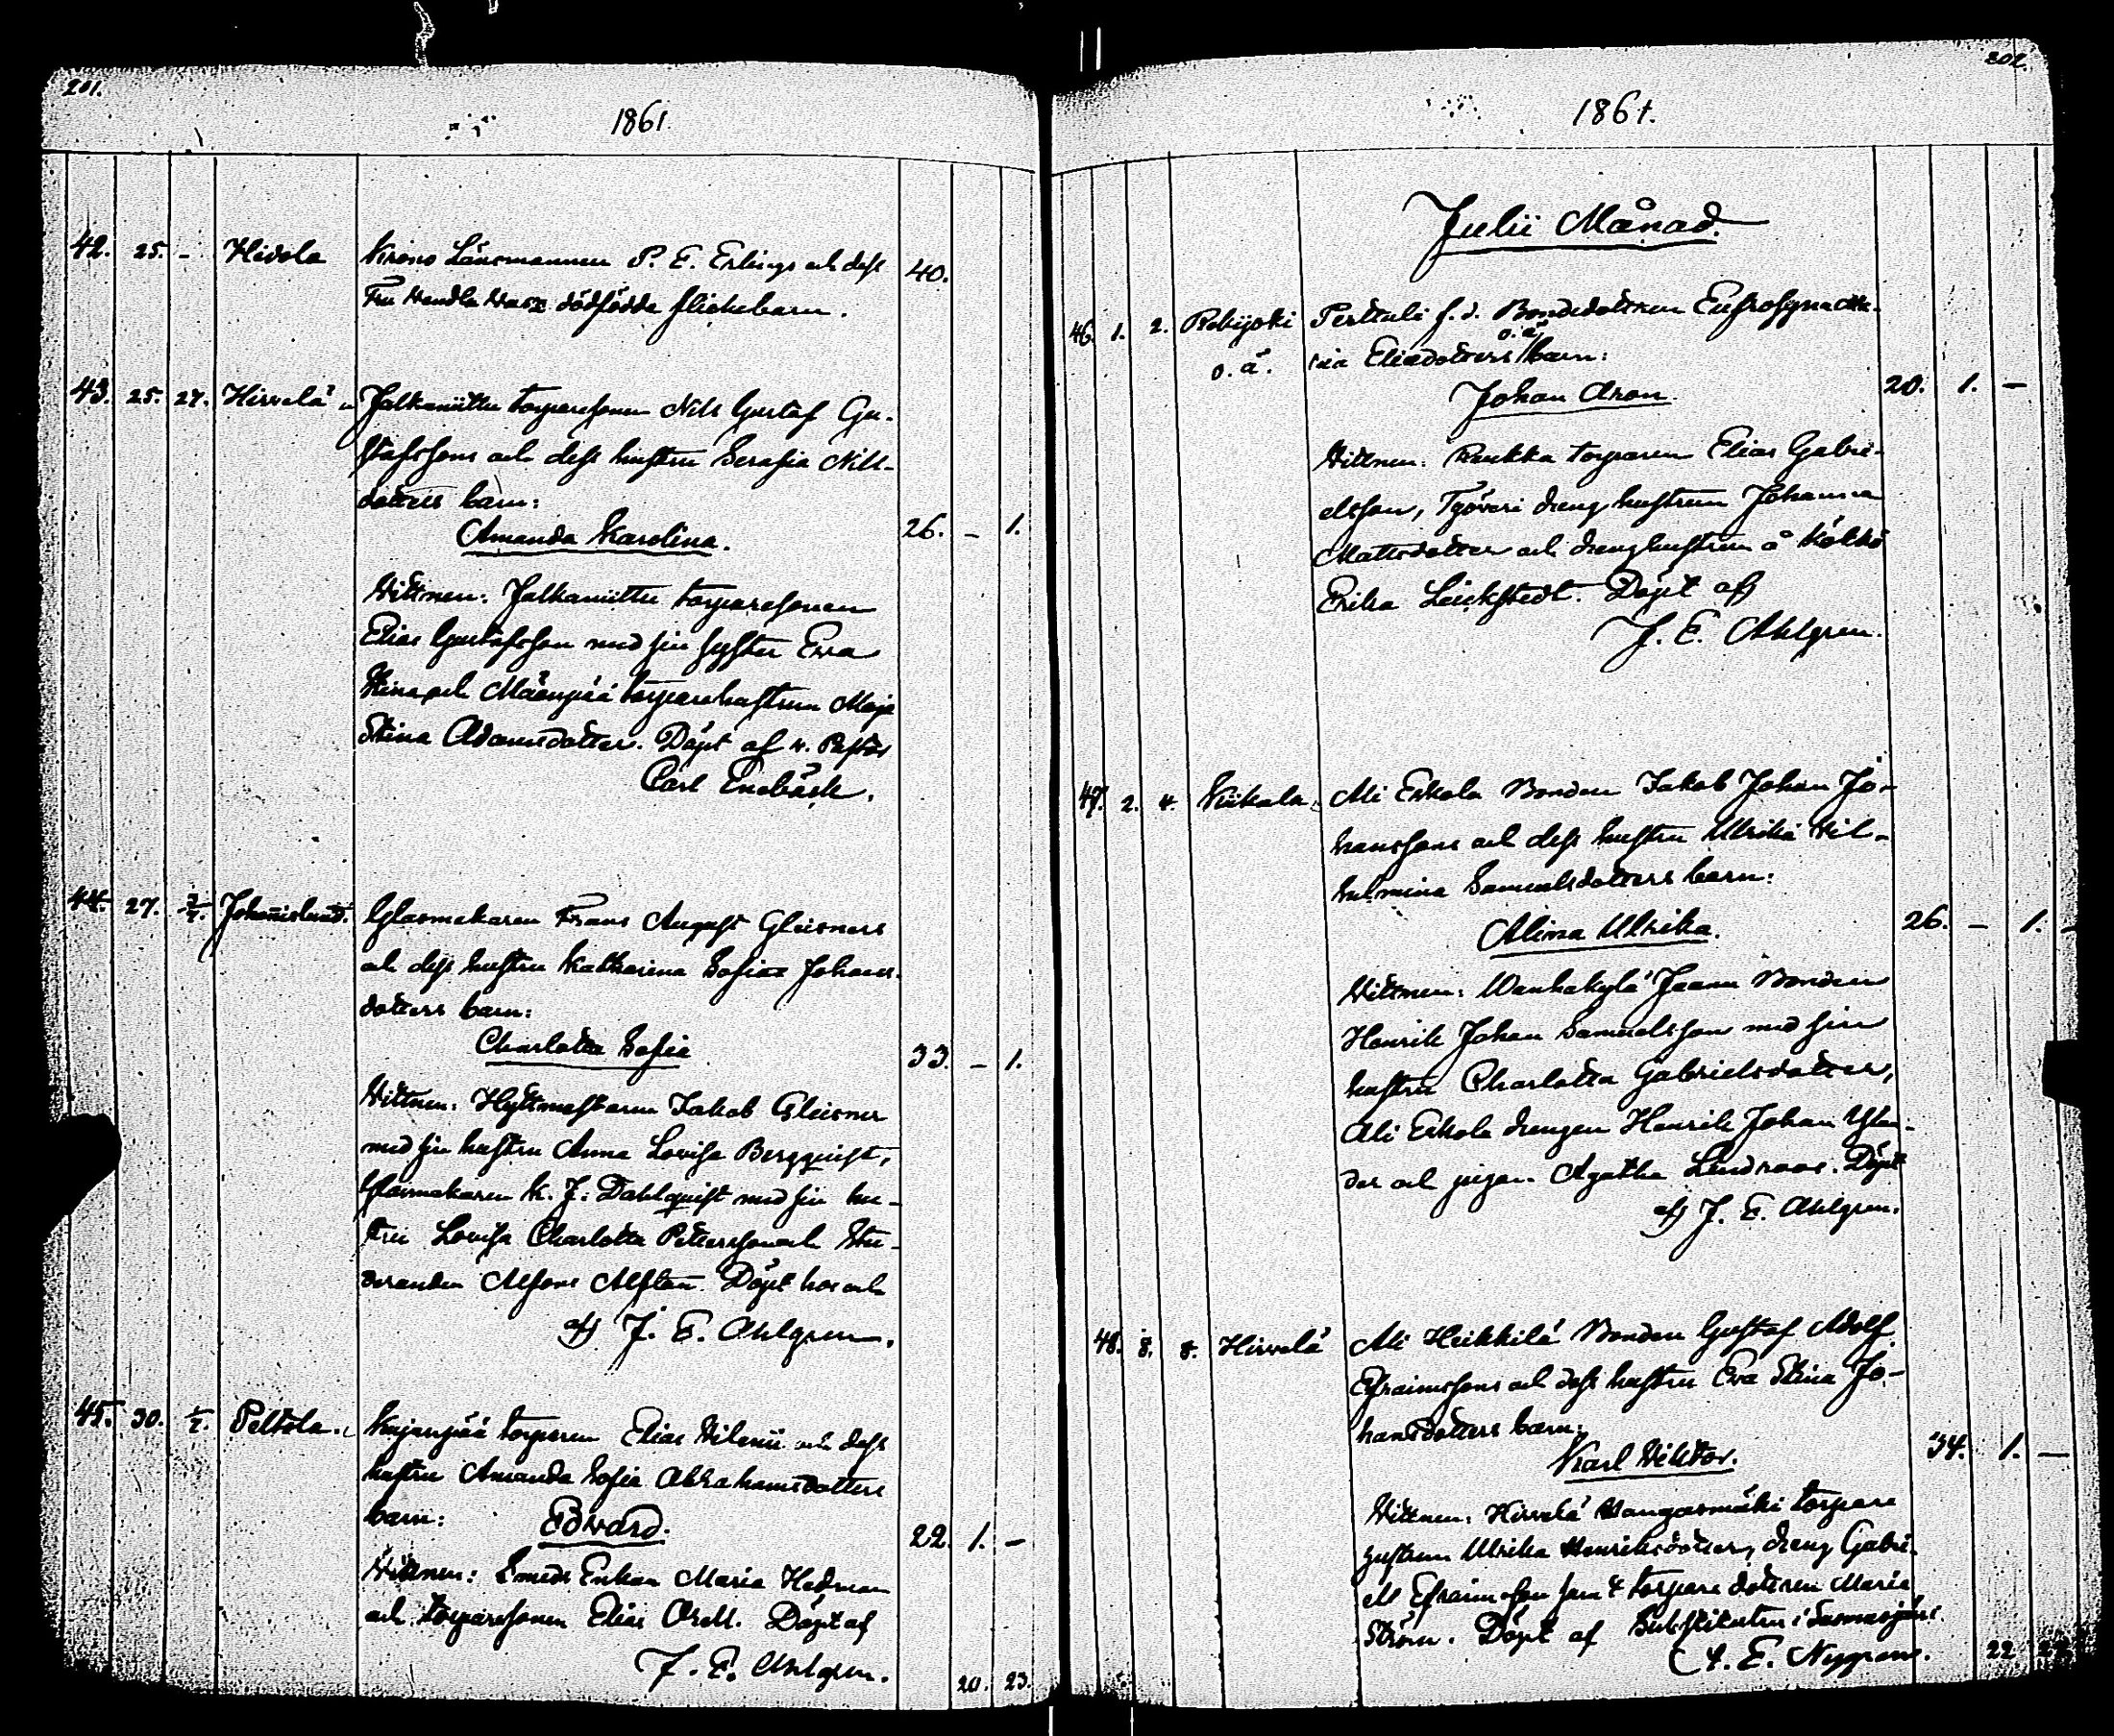 201.
1861.
42. 25. - Hidola Krono Länsmannen P. E. Erlings och dess 40.
Fru Hendla dödfödda flickebarn.
43. 25. 27. Hirvelä Jalkaniittu torparesonen Nils Gustaf Gu-
stafssons och dess hustru Serafia Nils-
dotters barn:
Amanda Karolina. 26. - 1.
Vittnen: Jalkaniittu torparesonen
Elias Gustafsson med sin syster Eva
Stina och Mäenpää torparehustrun Maja
Stina Adamsdotter. Döpt af v. Pastor
Carl Enebäck.
44. 27. 7/7. Johanislund. Glasmakaren Frans August Gleisners
och dess hustru Katharina Sofia Johans-
dotters barn:
Charlotta Sofia 33. - 1.
Vittnen: Hyttmestaren Jakob Gleisner
med sin hustru Anna Lovisa Bergquist,
Glasmakaren K. J. Dahlquist med sin hu-
stru Lovisa Charlotta Pettersson och Stu-
deranden Alfons Alftan. Döpt hos och
af J. E. Ahlgren.
45. 30. Peltola. Kujanpää torparen Elias Vilenii och dess
hustru Amanda Sofia Abrahamsdotters
barn: Edvard. 22. 1. -
Vittnen: Smeds Enkan Maria Hedman
och torparesonen Elias Orell. Döpt af
J. E. Ahlgren. 20. 23.
202.
1861.
Julii Månad.
46. 1. 2. Rekijoki Perttuli f. d. Bondedottren Eufrosyna Ma-
o. ä. ria Eliædotters o. ä. barn:
Johan Aron. 20. 1. -
Vittnen: Kuukka torparen Elias Gabri-
elsson, Työveri dräng hustrun Johanna
Mattsdotter och dränghustrun å Kölkö
Erika Leickstedt. Döpt af
J. E. Ahlgren.
47. 2. 4. Kiikala Ali Erkola Bonden Jakob Johan Jo-
hanssons och dess hustru Ulrika Vil-
helmina Samuelsdotters barn:
Alma Ulrika. 26. - 1. -
Vittnen: Wanhakylä Jaanu Bonden
Henrik Johan Samuelsson med sin
hustru Charlotta Gabrielsdotter,
Ali Erkola drengen Henrik Johan Ylan-
der och pigan Agatha Lindroos. Döpt
af J. E. Ahlgren.
48. 8. 8. Hirvelä Ali Heikkilä Bonden Gustaf Adolf
Efraimssons och dess hustru Eva Stina Jo-
hansdotters barn:
Karl Viktor. 34. 1. -
Vittnen: Hirvelä Kangasmäki torpare
hustrun Ulrika Henriksdotter, dreng Gabri-
el Efraimsson samt torpare dottren Maria
Ström. Döpt af Substituten i Sammajärvi
A. E. Nygren. 22.